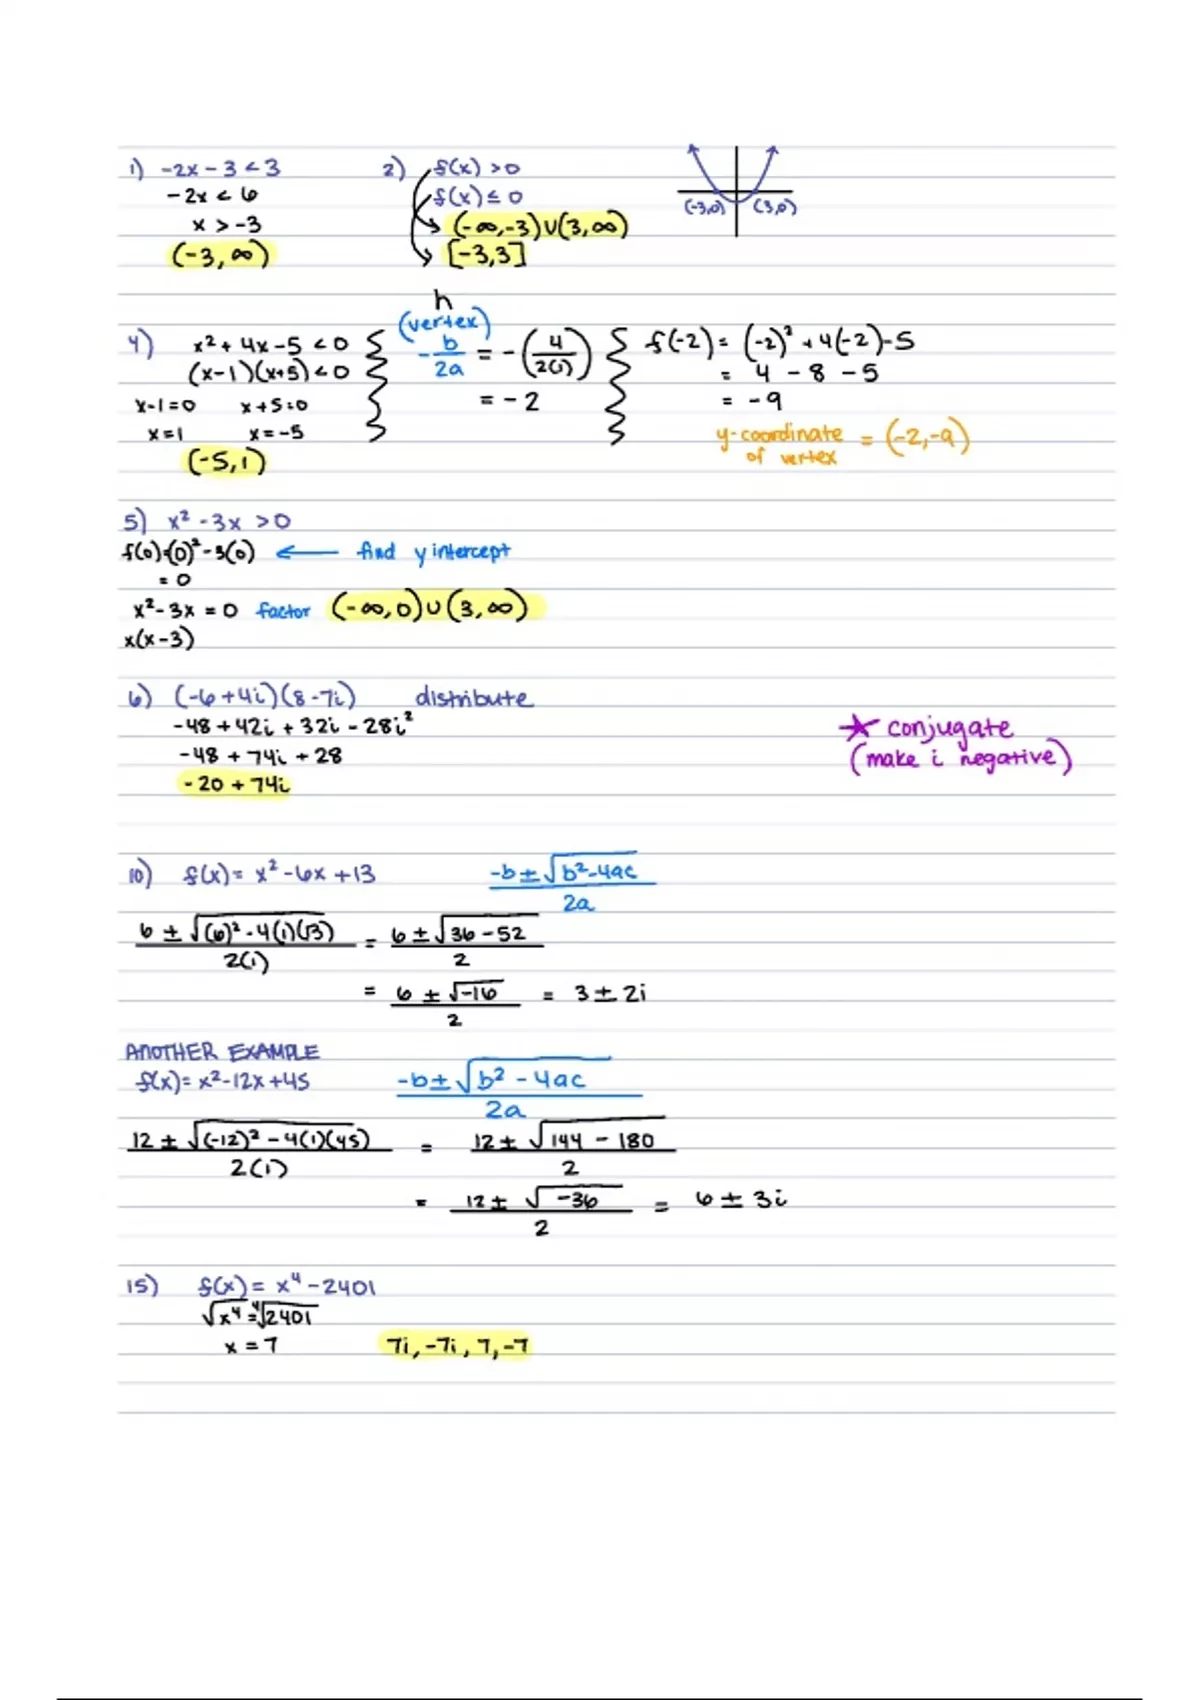 1) -2x - 3 < 3
-2x < 6
x > -3
(-3, ∞)
2) f(x) > 0
f(x) ≤ 0
(-∞, -3) ∪ (3, ∞)
[-3, 3]
(-3,0) (3,0)
4) x² + 4x - 5 < 0
(x-1)(x+5) < 0
x-1=0 x+5=0
x=1 x=-5
(-5, 1)
h
(vertex)
-b/2a = -(4/2(1))
= -2
f(-2) = (-2)² + 4(-2) - 5
= 4 - 8 - 5
= -9
y-coordinate of vertex = (-2, -9)
5) x² - 3x > 0
f(0)=(0)² - 3(0) ← find y intercept
= 0
x² - 3x = 0 factor (-∞, 0) ∪ (3, ∞)
x(x-3)
6) (-6+4i)(8-7i) distribute
-48 + 42i + 32i - 28i²
-48 + 74i + 28
-20 + 74i
★ conjugate
(make i negative)
10) f(x) = x² - 6x + 13 (-b ± √(b²-4ac))/2a
(6 ± √((6)² - 4(1)(13)))/2(1) = (6 ± √(36 - 52))/2
= (6 ± √-16)/2 = 3 ± 2i
ANOTHER EXAMPLE
f(x) = x² - 12x + 45 (-b ± √(b² - 4ac))/2a
(12 ± √((-12)² - 4(1)(45)))/2(1) = (12 ± √(144 - 180))/2
= (12 ± √-36)/2 = 6 ± 3i
15) f(x) = x⁴ - 2401
√x⁴ = ⁴√2401
x = 7 7i, -7i, 7, -7